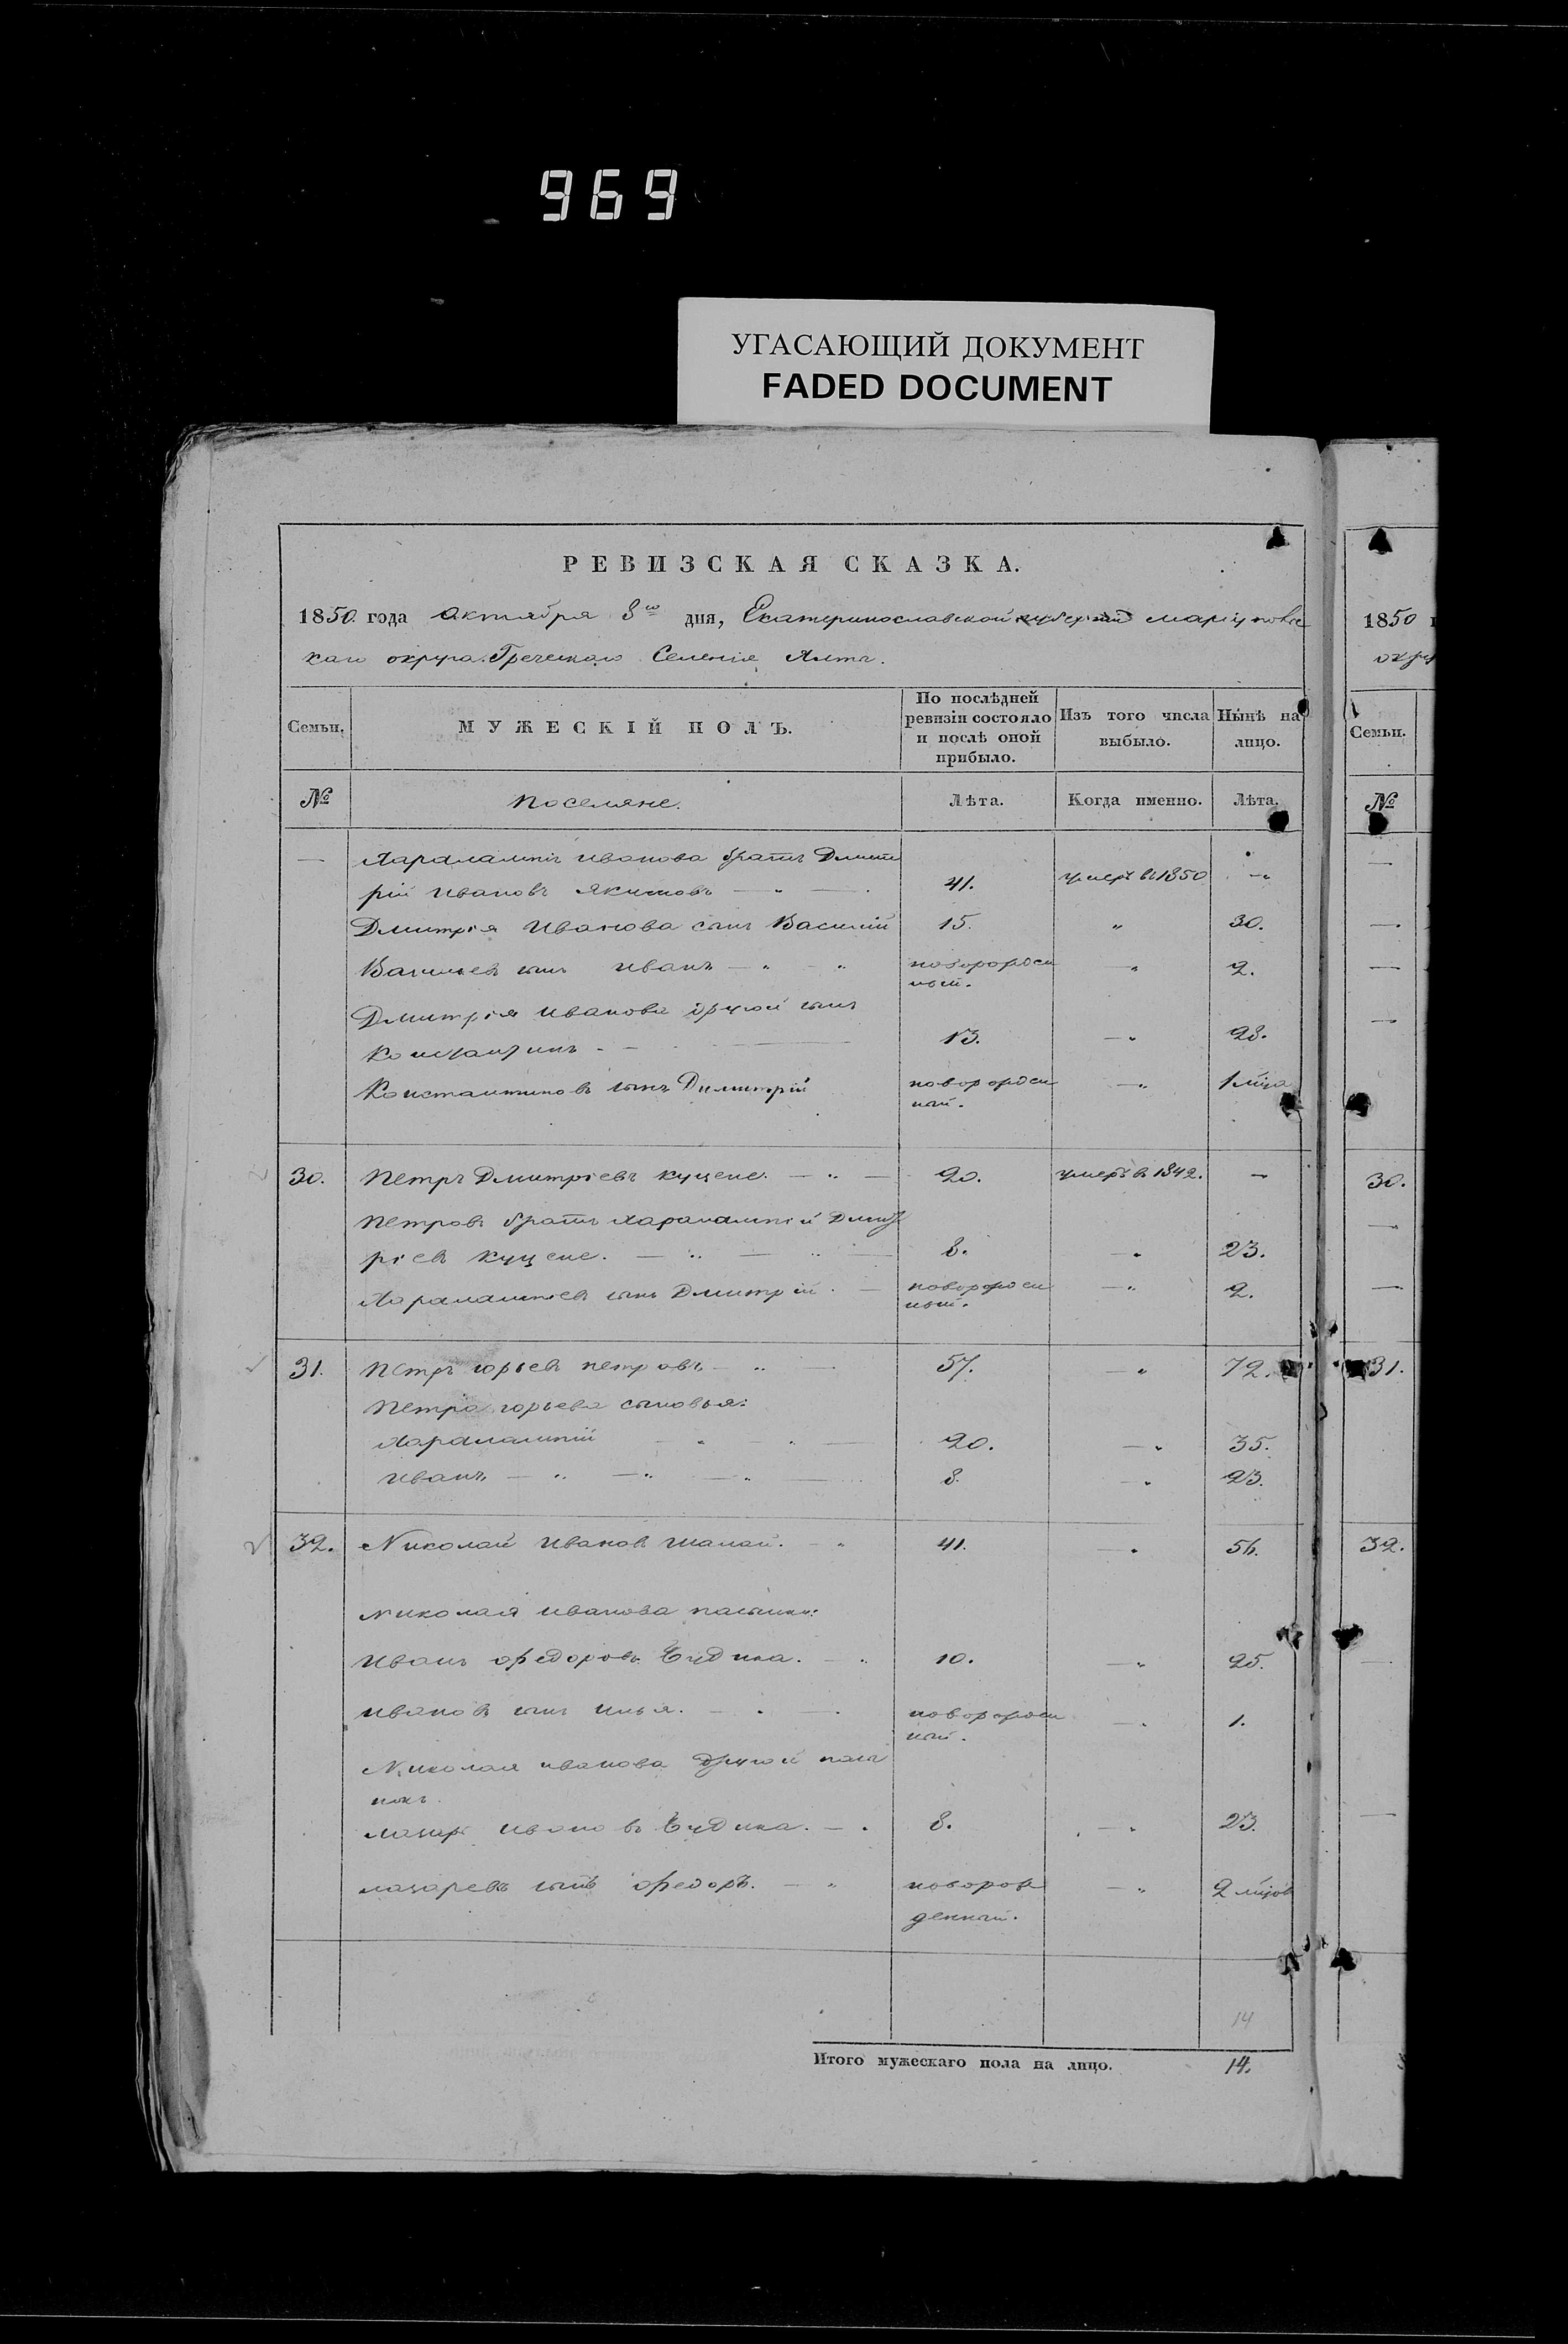 969
УГАСАЮЩИЙ ДОКУМЕНТ
FADED DOCUMENT
РЕВИЗСКАЯ СКАЗКА.
1850 года Октября 8го дня, Екатеринославской губерніи Маріуполь
скаго округа Греческаго Селенія Ялты.
Семьи. МУЖЕСКІЙ ПОЛЪ. По послѣдней ревизіи состояло и послѣ оной прибыло. Изъ того числа выбыло. Нынѣ на лицо.
№ Поселяне. Лѣта. Когда именно. Лѣта.
— Харалампія Иванова братъ Дмит
рій Ивановъ Якимовъ — " — 41. умеръ въ 1850 — "
Дмитрія Иванова сынъ Василій 15. " 30.
Васильевъ сынъ Иванъ — " — " новорожден
ный. — " 2.
Дмитрія Иванова другой сынъ
Константинъ — 13. — " 28.
Константиновъ сынъ Димитрій новорожден
ный. — " 1 мѣца
30. Петръ Дмитріевъ Куцене. — " — 20. умеръ въ 1842. —
Петровъ братъ Харалампій Дмит
ріевъ Куцене. — " — " — 8. — " 23.
Харалампіевъ сынъ Дмитрій. — новорожден
ный. — " 2.
31. Петръ Юрьевъ Петровъ — " — 57. — " 72.
Петра Юрьева сыновья:
Харалампій — " — " — 20. — " 35.
Иванъ — " — " — " — 8. — " 23.
32. Николай Ивановъ Шапай. — " 41. — " 56.
Николая Иванова пасынки:
Иванъ Федоровъ Чудика. — " 10. — " 25.
Ивановъ сынъ Илья. — " — новорожден
ный. — " 1.
Николая Иванова другой пасы
нокъ
Лазарь Ивановъ Чудика. — " 8. — " 23.
Лазаревъ сынъ Федоръ. — " новорож
денный. — " 2 мѣцов
14
Итого мужескаго пола на лицо. 14.
1850
окру
Семьи.
№
30.
31.
32.